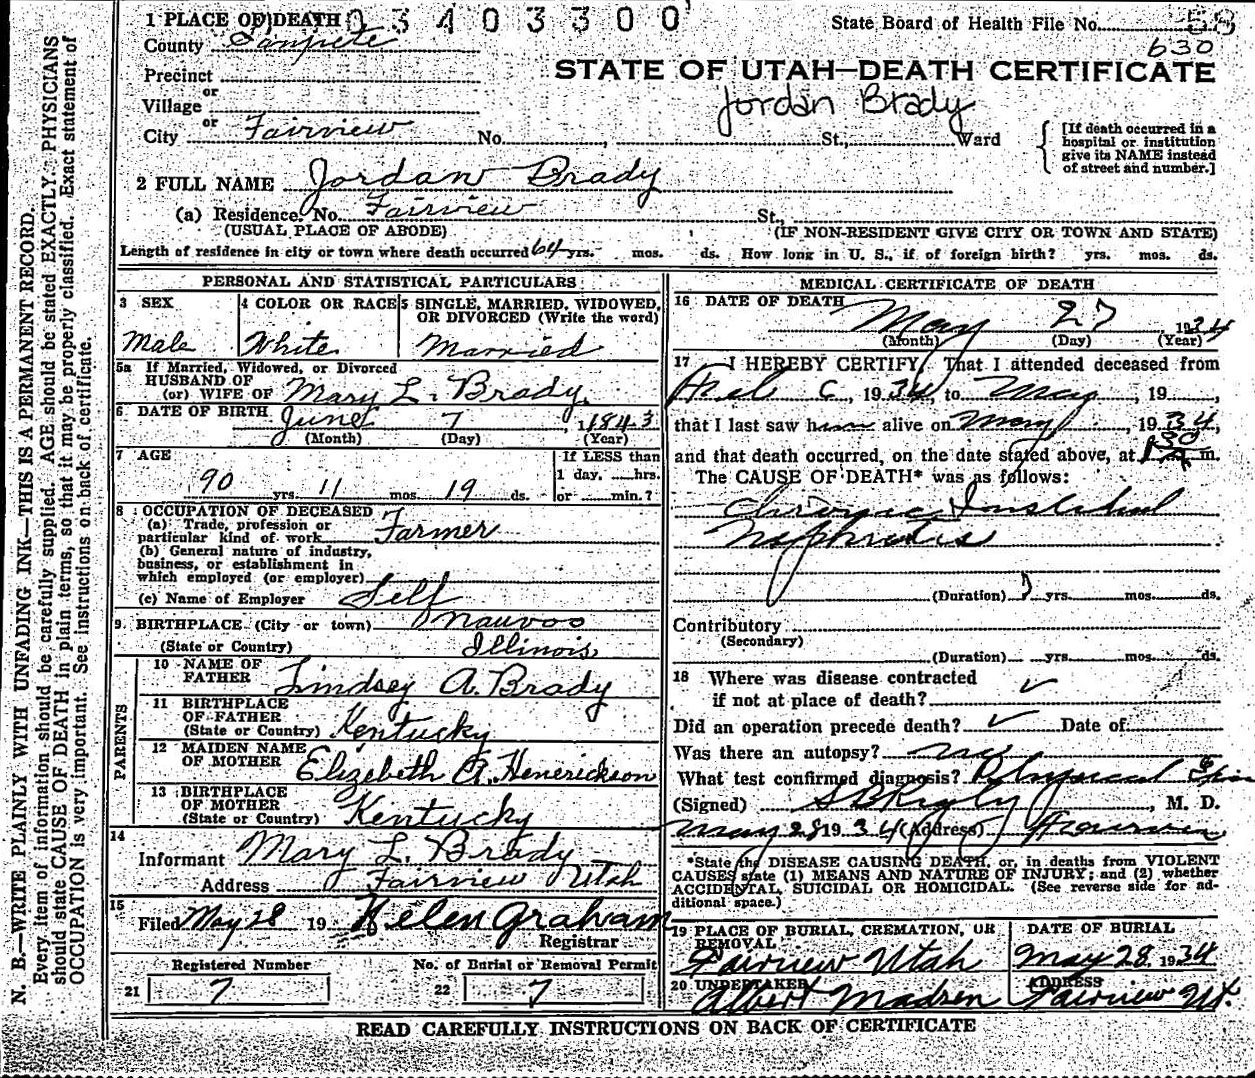 03403300
1 PLACE OF DEATH State Board of Health File No. 58
County Sanpete 630
Precinct
or
Village
or
STATE OF UTAH—DEATH CERTIFICATE
Jordan Brady
City Fairview No. , St., Ward
[If death occurred in a hospital or institution give its NAME instead of street and number.]
2 FULL NAME Jordan Brady
(a) Residence. No. Fairview St.,
(USUAL PLACE OF ABODE) (IF NON-RESIDENT GIVE CITY OR TOWN AND STATE)
Length of residence in city or town where death occurred 64 yrs. mos. ds. How long in U. S., if of foreign birth? yrs. mos. ds.
PERSONAL AND STATISTICAL PARTICULARS
3 SEX
Male
4 COLOR OR RACE
White
5 SINGLE, MARRIED, WIDOWED,
OR DIVORCED (Write the word)
Married
5a If Married, Widowed, or Divorced
HUSBAND OF
(or) WIFE OF Mary L. Brady.
6 DATE OF BIRTH June 7, 1843
(Month) (Day) (Year)
7 AGE
90 yrs. 11 mos. 19 ds.
If LESS than
1 day. hrs.
or min.?
8 OCCUPATION OF DECEASED
(a) Trade, profession or
particular kind of work Farmer
(b) General nature of industry,
business, or establishment in
which employed (or employer)
(c) Name of Employer Self
9 BIRTHPLACE (City or town) Nauvoo
(State or Country) Illinois
PARENTS
10 NAME OF
FATHER Lindsey A. Brady
11 BIRTHPLACE
OF FATHER
(State or Country) Kentucky
12 MAIDEN NAME
OF MOTHER Elizebeth A. Henerickson
13 BIRTHPLACE
OF MOTHER
(State or Country) Kentucky
14
Informant Mary L. Brady
Address Fairview Utah
15
Filed May 28 19 Helen Graham
Registrar
Registered Number No. of Burial or Removal Permit
21 7 22 7
MEDICAL CERTIFICATE OF DEATH
16 DATE OF DEATH
May 27, 1934
(Month) (Day) (Year)
17 I HEREBY CERTIFY, That I attended deceased from
6, 1934, to May, 19
that I last saw him alive on May, 1934,
and that death occurred, on the date stated above, at 1 30 m.
The CAUSE OF DEATH* was as follows:
Chronic Interstitial
Nephritis
(Duration) yrs. mos. ds.
Contributory
(Secondary)
(Duration) yrs. mos. ds.
18 Where was disease contracted
if not at place of death? ✓
Did an operation precede death? ✓ Date of
Was there an autopsy? no
What test confirmed diagnosis? Physical
(Signed) , M. D.
May 28 1934 (Address) Fairview
*State the DISEASE CAUSING DEATH, or, in deaths from VIOLENT
CAUSES state (1) MEANS AND NATURE OF INJURY; and (2) whether
ACCIDENTAL, SUICIDAL OR HOMICIDAL. (See reverse side for ad-
ditional space.)
19 PLACE OF BURIAL, CREMATION, OR
REMOVAL
Fairview Utah
DATE OF BURIAL
May 28, 1934
20 UNDERTAKER
Albert Madsen
ADDRESS
Fairview Ut.
READ CAREFULLY INSTRUCTIONS ON BACK OF CERTIFICATE
N. B.—WRITE PLAINLY WITH UNFADING INK—THIS IS A PERMANENT RECORD.
Every item of information should be carefully supplied. AGE should be stated EXACTLY. PHYSICIANS
should state CAUSE OF DEATH in plain terms, so that it may be properly classified. Exact statement of
OCCUPATION is very important. See instructions on back of certificate.